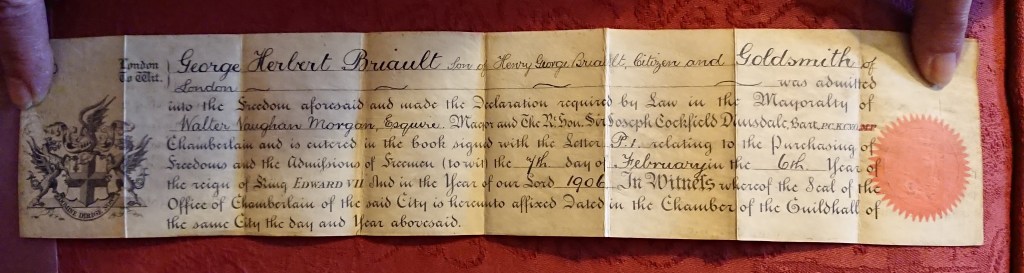 London
To Wit.
George Herbert Briault Son of Henry George Briault, Citizen and Goldsmith of
London was admitted
into the Freedom aforesaid and made the Declaration required by Law in the Mayoralty of
Walter Vaughan Morgan, Esquire, Mayor and The Rt. Hon. Sir Joseph Cockfield Dimsdale, Bart.
Chamberlain and is entered in the book signed with the Letter P.1. relating to the Purchasing of
Freedoms and the Admissions of Freemen (to wit) the 7th day of February in the 6th Year of
the reign of King EDWARD VII And in the Year of our Lord 1906. In Witness whereof the Seal of the
Office of Chamberlain of the said City is hereunto affixed Dated in the Chamber of the Guildhall of
the same City the day and Year abovesaid.